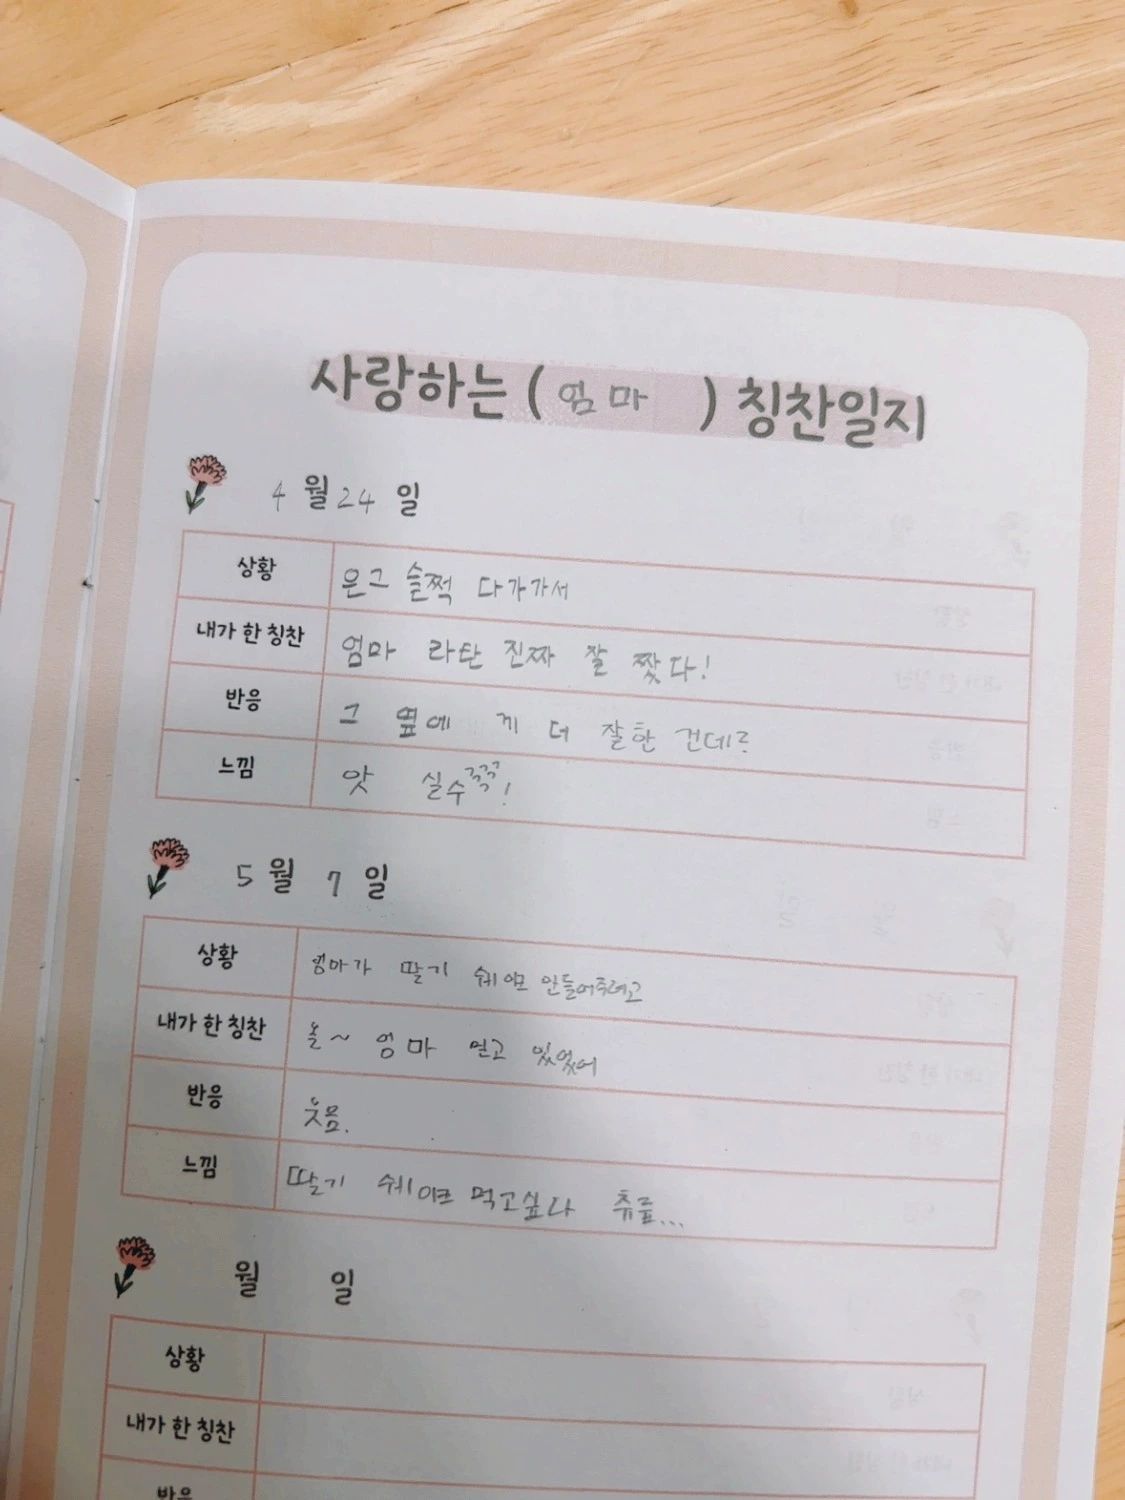 사랑하는 ( 엄마 ) 칭찬일지
4 월 24 일
상황 은그 슬쩍 다가가서
내가 한 칭찬 엄마 라탄 진짜 잘 짰다!
반응 그 옆에 께 더 잘한 건데?
느낌 앗 실수 !
5 월 7 일
상황 엄마가 딸기 쉐이크 만들어주려고
내가 한 칭찬 올~ 엄마 믿고 있었어
반응 웃음.
느낌 딸기 쉐이크 먹고싶다 츄릅...
월 일
상황
내가 한 칭찬
반응